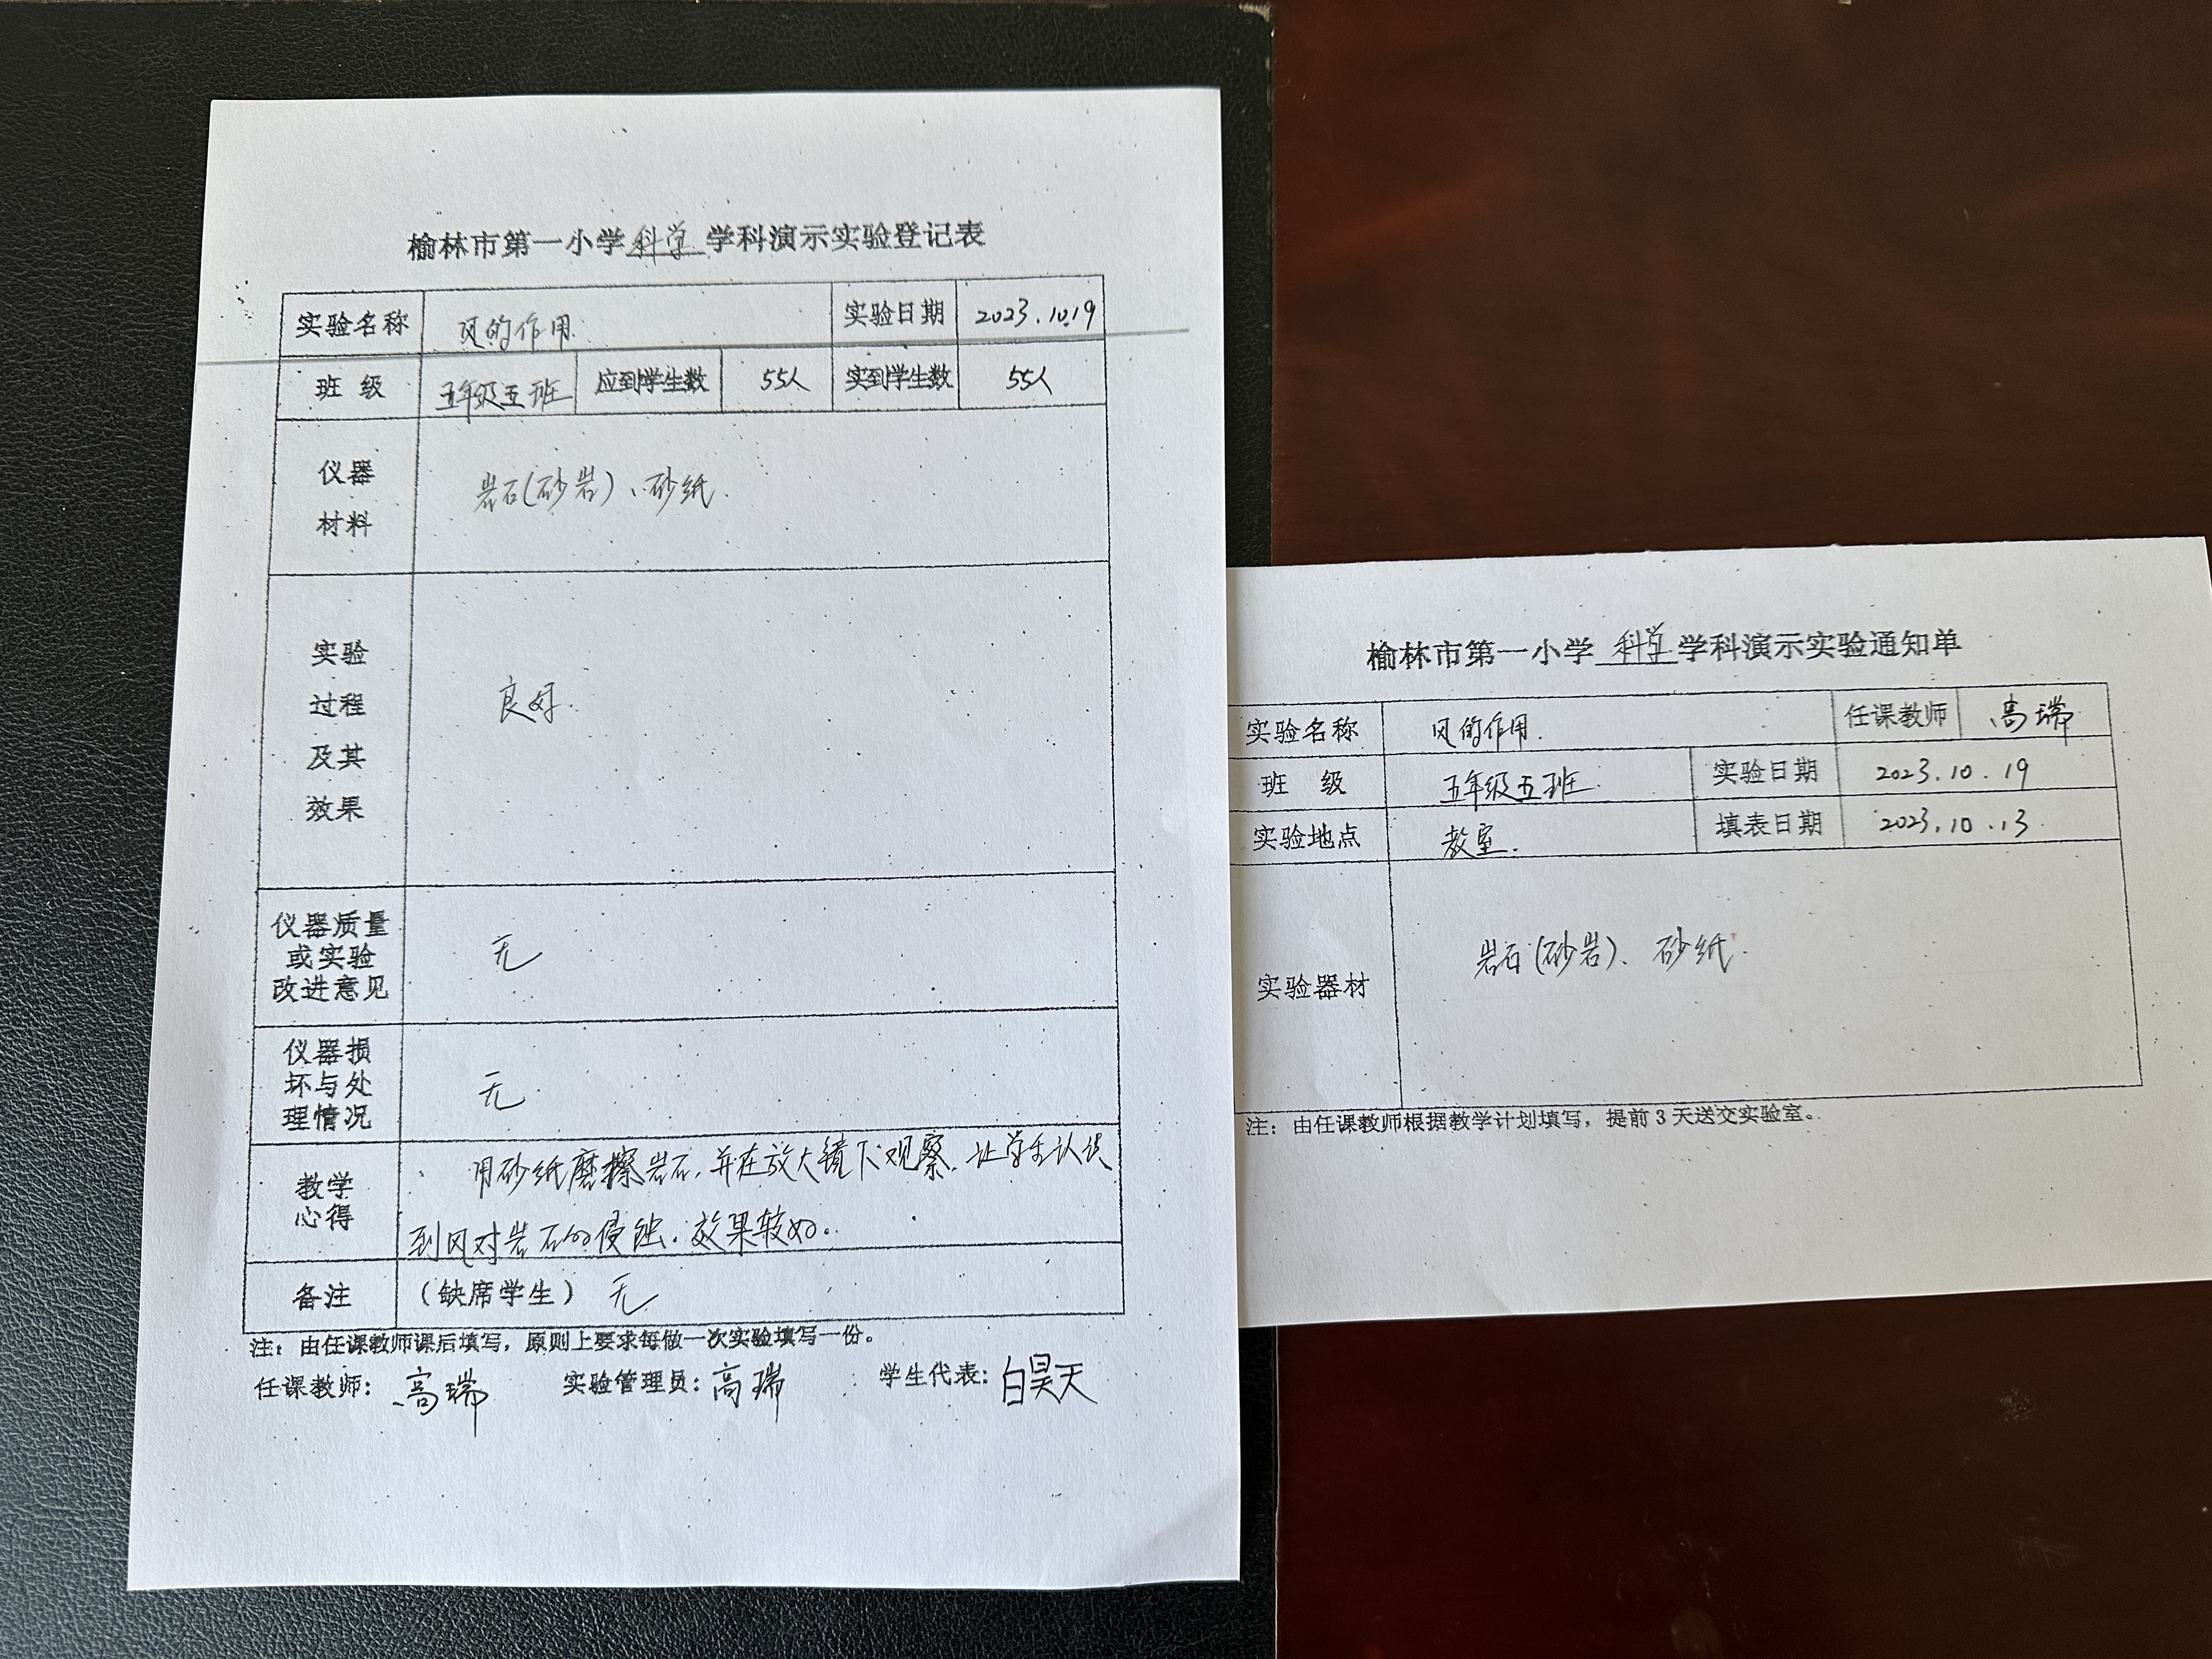 榆林市第一小学科学学科演示实验登记表
实验名称 风的作用. 实验日期 2023.10.19
班 级 五年级五班 应到学生数 55人 实到学生数 55人
仪器
材料
岩石(砂岩)、砂纸.
实验
过程
及其
效果
良好.
仪器质量
或实验
改进意见
无
仪器损
坏与处
理情况
无
教学
心得
用砂纸磨擦岩石,并在放大镜下观察.让学生认识
到风对岩石的侵蚀.效果较好.
备注 (缺席学生) 无
注：由任课教师课后填写，原则上要求每做一次实验填写一份。
任课教师：高瑞 实验管理员：高瑞 学生代表：白昊天
榆林市第一小学科学学科演示实验通知单
实验名称 风的作用. 任课教师 高瑞
班 级 五年级五班. 实验日期 2023.10.19
实验地点 教室. 填表日期 2023.10.13
实验器材 岩石(砂岩)、砂纸.
注：由任课教师根据教学计划填写，提前3天送交实验室。